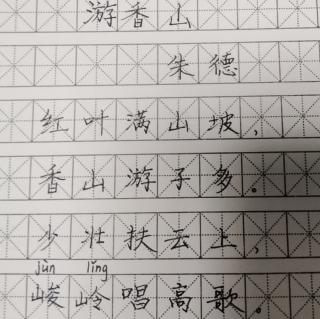 游香山
朱德
红叶满山坡，
香山游子多。
少壮扶云上，
jùn lǐng
峻岭唱高歌。